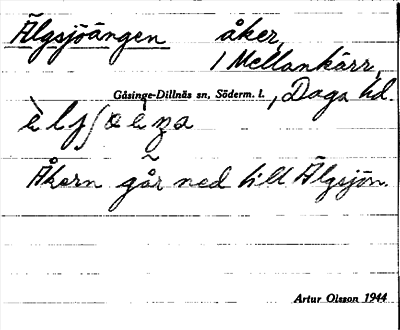 Älgsjöängen åker
i Mellankärr,
Gåsinge-Dillnäs sn, Söderm. l., Daga hd.
Åkern går ned till Älgsjön.
Artur Olsson 1944